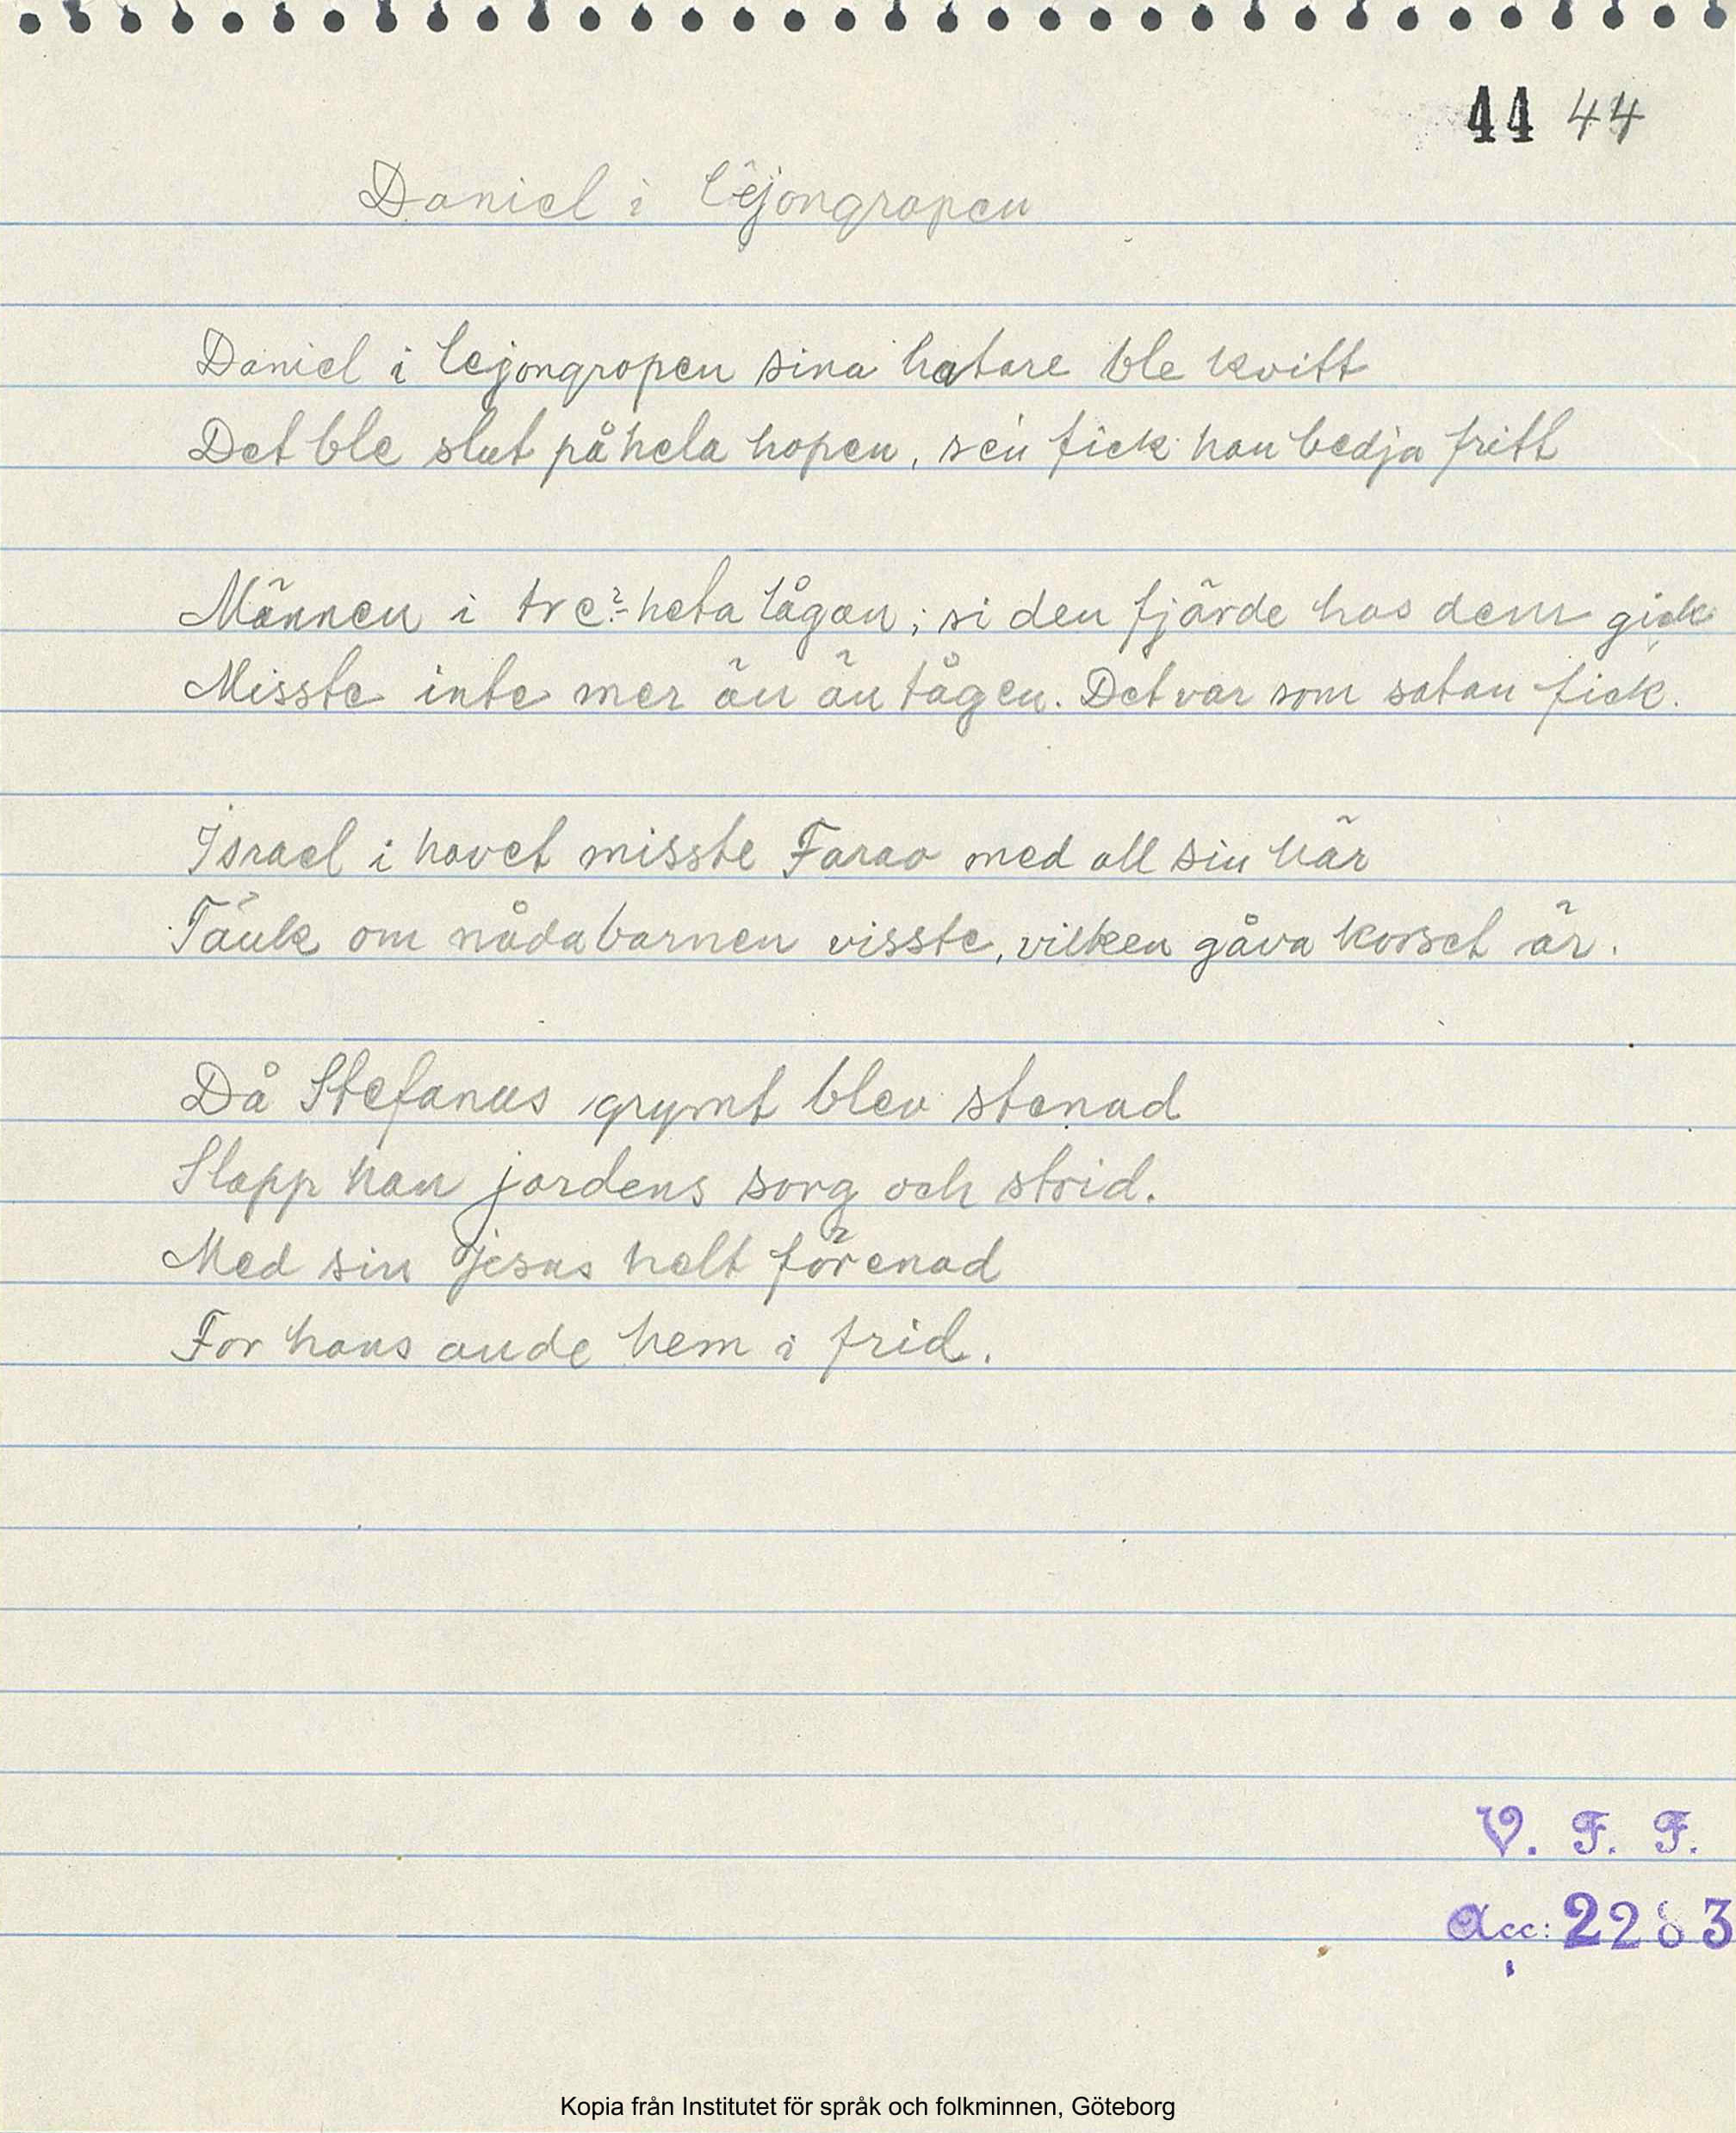 44 44
Daniel i lejongropen
Daniel i lejongropen sina hatare ble kvitt
Det ble slut på hela hopen, se'n fick han bedja fritt
Männen i tre?-heta lågan; si den fjärde hos dem gick
Misste inte mer än än tågen. Det var som satan fick.
Israel i havet misste Farao med all sin här
Tänk om nådabarnen visste, vilken gåva korset är.
Då Stefanus grymt blev stenad
Slapp han jordens sorg och strid.
Med sin Jesus helt förenad
For hans ande hem i frid.
V. F. F.
Acc: 2283
Kopia från Institutet för språk och folkminnen, Göteborg